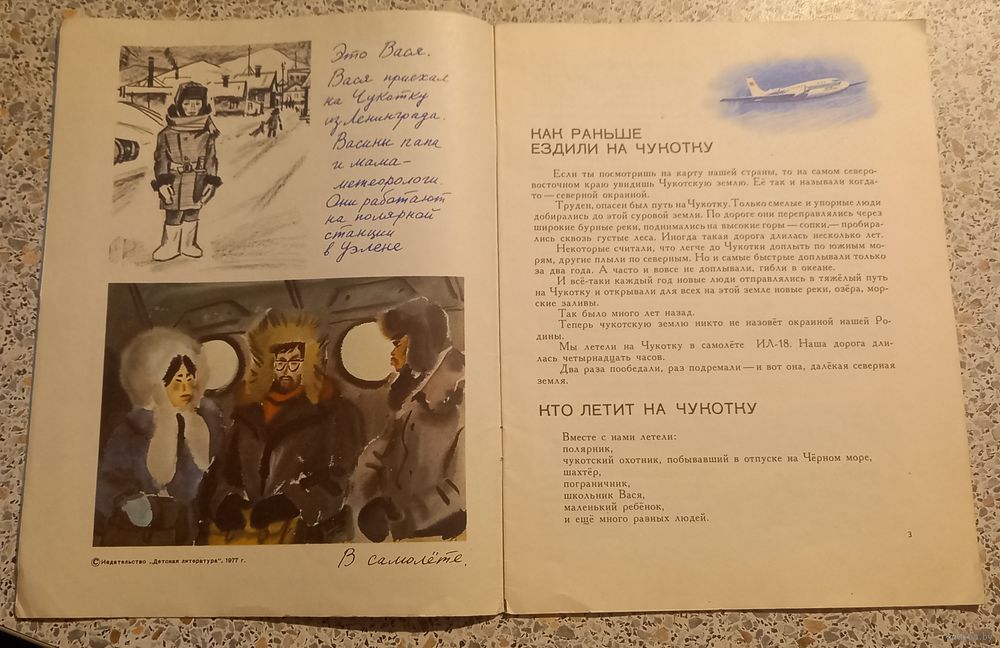 Это Вася.
Вася приехал
на Чукотку
из Ленинграда.
Васины папа
и мама—
метеорологи.
Они работают
на полярной
станции
в Уэлене
© Издательство „Детская литература“, 1977 г.
В самолёте.
КАК РАНЬШЕ
ЕЗДИЛИ НА ЧУКОТКУ
Если ты посмотришь на карту нашей страны, то на самом северо-
восточном краю увидишь Чукотскую землю. Её так и называли когда-
то — северной окраиной.
Труден, опасен был путь на Чукотку. Только смелые и упорные люди
добирались до этой суровой земли. По дороге они переправлялись через
широкие бурные реки, поднимались на высокие горы — сопки,— пробира-
лись сквозь густые леса. Иногда такая дорога длилась несколько лет.
Некоторые считали, что легче до Чукотки доплыть по южным мо-
рям, другие плыли по северным. Но и самые быстрые доплывали только
за два года. А часто и вовсе не доплывали, гибли в океане.
И всё-таки каждый год новые люди отправлялись в тяжёлый путь
на Чукотку и открывали для всех на этой земле новые реки, озёра, мор-
ские заливы.
Так было много лет назад.
Теперь чукотскую землю никто не назовёт окраиной нашей Ро-
дины.
Мы летели на Чукотку в самолёте ИЛ-18. Наша дорога дли-
лась четырнадцать часов.
Два раза пообедали, раз подремали — и вот она, далёкая северная
земля.
КТО ЛЕТИТ НА ЧУКОТКУ
Вместе с нами летели:
полярник,
чукотский охотник, побывавший в отпуске на Чёрном море,
шахтёр,
пограничник,
школьник Вася,
маленький ребёнок,
и ещё много разных людей.
3